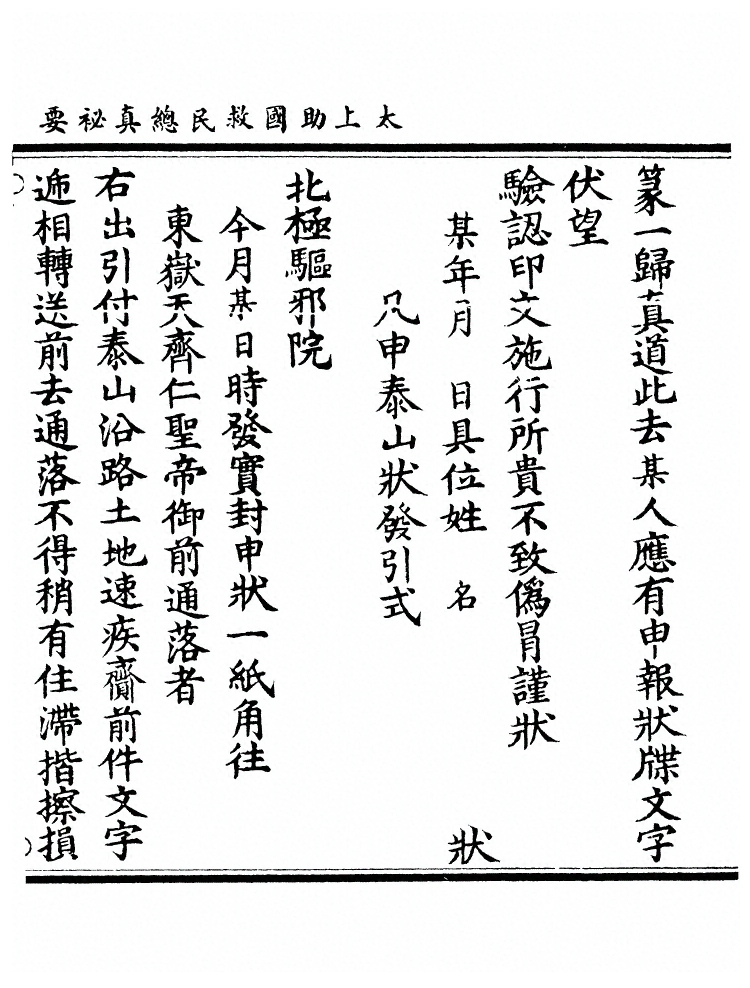 太上助國救民總真祕要
篆一歸真道此去某人應有申報狀牒文字
伏望
驗認印文施行所貴不致僞冐謹狀
某年月 日具位姓 名 狀
凡申泰山狀發引式
北極驅邪院
今月某日時發實封申狀一紙角往
東嶽天齊仁聖帝御前通落者
右出引付泰山沿路土地速疾齎前件文字
逓相轉送前去通落不得稍有住滯揩擦損